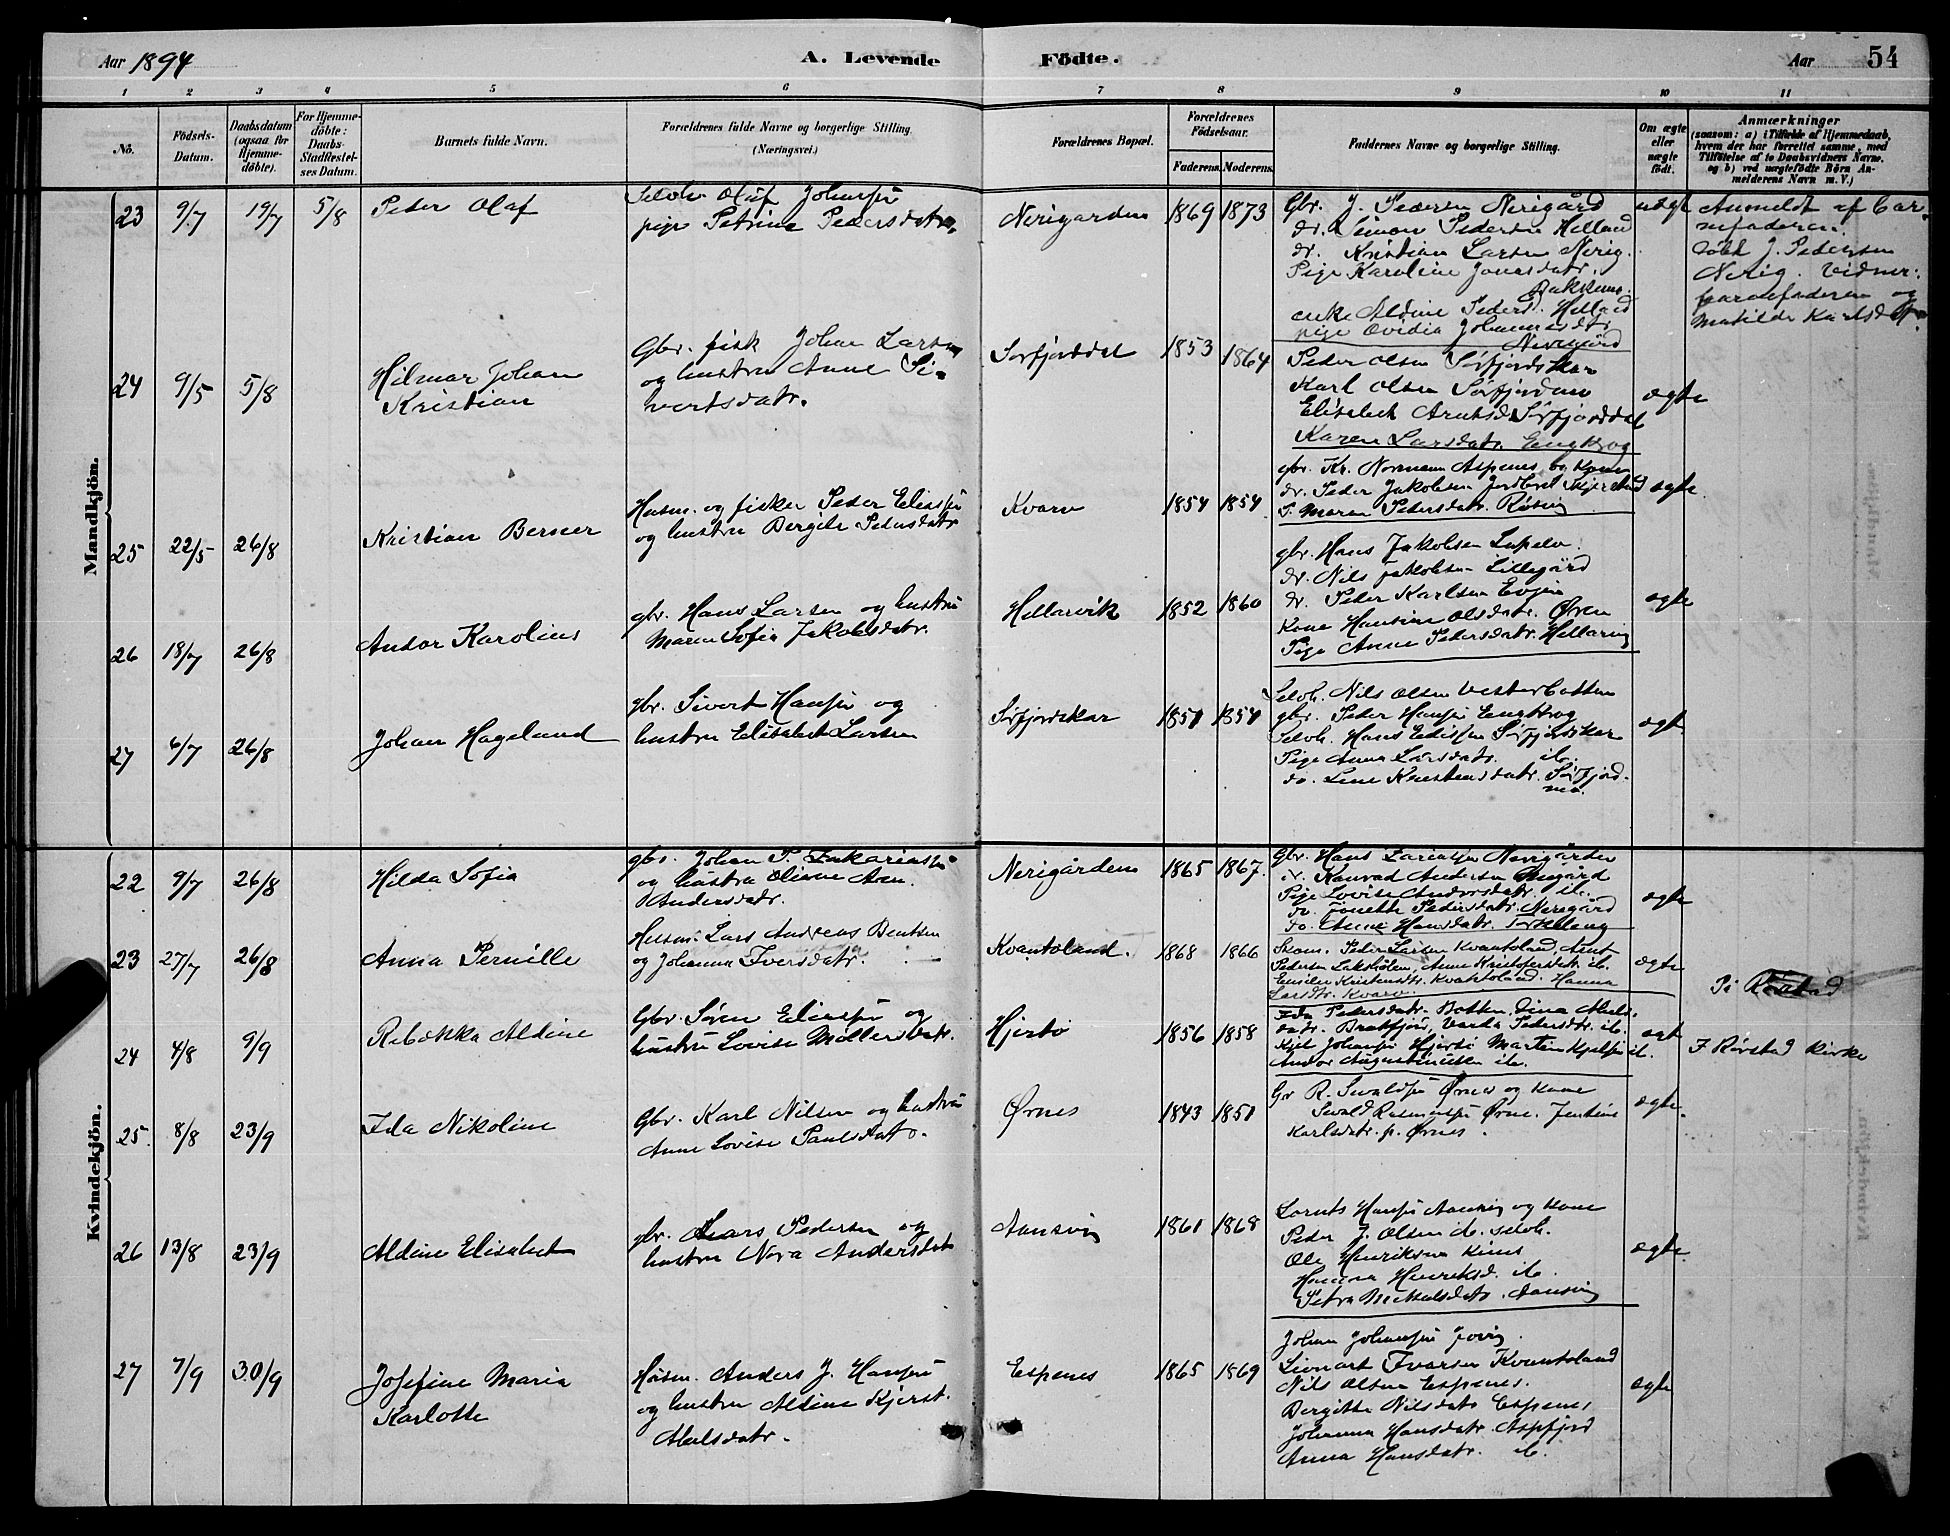 Aar 1894
A. Levende Fødte.
Aar 54
1 2 3 4 5 6 7 8 9 10 11
No.
Fødsels-Datum.
Daabsdatum (ogsaa for Hjemme-døbte).
For Hjemme-døbte: Daabs-Stadfæstel-ses Datum.
Barnets fulde Navn.
Forældrenes fulde Navne og borgerlige Stilling. (Næringsvei.)
Forældrenes Bopæl.
Forældrenes Fødselsaar.
Faderens. Moderens.
Faddernes Navne og borgerlige Stilling.
Om ægte eller uægte født.
Anmærkninger
(saasom: a) i Tilfælde af Hjemmedaab,
hvem der har forrettet samme, med
Tilføielse af to Daabsvidners Navne,
og b) ved uægtefødte Børn An-
melderens Navn m. V.)
Mandkjøn.
23 9/7 19/7 5/8 Peder Olaf
Selvh Olaf Johansen
pige Petrine Pedersdatr.
Nerigarden 1869 1873
Gbr. J. Pedersen Nerigård
dr. Simon Pedersen Helland
dr. Kristian Larsen Nerig.
Pige Karoline Jonasdatr.
enke Aldine Peders. Helland
pige Ovidia Johannesdtr
Nerigård
uægt
Anmeldt af Bar-
nefaderen.
Døbt J. Pedersen
Nerig. Vidner:
barnefaderen og
Matilde Karlsdatr
24 9/5 5/8 Hilmar Johan
Kristian
Gbr. fisk Johan Larsen
og hustru Anne Si-
vertsdatr.
Sørfjorddal 1853 1864
Peder Olsen Sørfjordskar
Karl Olsen Sørfjordmo
Elisabeth Arntsd. Sørfjorddal
Karen Larsdatr. Engkrog
ægte
25 22/5 26/8 Kristian Berner
Husm. og fisker Peder Eliassen
og hustru Bergite Pedersdatr
Kvarv 1854 1854
gbr. Kr. Normann Aspenes og Kone
dr. Peder Jakobsen
P. Maren Pedersdatr. Røsvig
ægte
26 18/7 26/8 Andor Karolius
gbr. Hans Larsen og hustru
Maren Sofia Jakobsdatr.
Hellarvik 1852 1860
gbr. Hans Jakobsen
dr. Nils Jakobsen Lillegård
dr. Peder Karlsen Evjen
Kone Hansine Olsdatr. Ören
Pige Anne Pedersdatr. Hellarvig
ægte
27 6/7 26/8 Johan Hageland
gbr. Sivert Hansen og
hustru Elisabet Larsen
Sørfjordskar 1851 1854
Selvh. Nils Olsen Vesterbotten
gbr. Peder Hansen Engkrog
Selvh. Hans Edissen Sørfjordskar
Pige Anna Larsdatr. ib.
do. Lene Kristensdatr. Sørfjord-
mo.
ægte
Kvindekjøn.
22 9/7 26/8 Hilda Sofia
gbr. Johan P. Zakariassen
og hustru Oliane
Andersdatr.
Nerigården 1865 1867.
Gbr. Hans Zariassen Nerigården
dr. Konrad Andersen
Pige Lovise Andorsdatr. ib.
do. Jonette Pedersdatr. Neregård
do. Anne Hansdatr.
ægte
23 27/7 26/8 Anna Pernille
Husm. Lars Andreas Bentsen
og Johanna Iversdatr.
Kvantoland. 1868 1866
Peder Larsen Kvantoland, Arnt
Pedersen Laksholen, Anne Kristofersdatr. ib.
Emilie Kristensdtr. Kvantoland. Hanna
Larsdtr. Kvarv.
ægte
24 4/8 9/9 Rebekka Aldine
Gbr. Søren Eliassen og
hustru Lovise Møllersdatr.
Hjertø 1856 1858
Ida Pedersdatr. Botten, Dina
datr. Brakfjord, Varda Pedersdtr. ib.
Kjel Johansen Hjertø Marten Kjelsen ib.
Andor Augustinussen ib.
ægt
I Rørstad kirke
25. 8/8 23/9 Ida Nikoline
Gbr. Karl Nilsen og hustru
Anne Lovise Paulsdatr.
Ørnes 1843 1851
Gr R. Sivaldsen Ørnes og Kone
Sivald Rasmussen Ørnes. Jentine
Karlsdatr. p. Ørnes.
ægte.
26 13/8 23/9 Aldine Elisabet
gbr. Lars Pedersen og
hustru Nora Andersdatr
Aansvig 1861 1868
Lornts Hansen Aansvig og Kone
Peder J. Olsen ib. selvh.
Ole Henriksen Kines
Hanna Henriksd. ib.
Petra Mikkalsdatr. Aansvig
ægte
27 7/9 30/9 Josefine Maria
Karlotte
Husm. Anders J. Hansen
og hustru Aldine Kjerst.
Abelsdatr.
Espenes 1865 1869
Johan Johansen Jovig.
Lionart Ivarsen Kvantoland
Nils Olsen Espenes.
Bergitte Nilsdatr Espenes
Johanna Hansdatr. Aspfjord
Anna Hansdatr. ib.
ægte